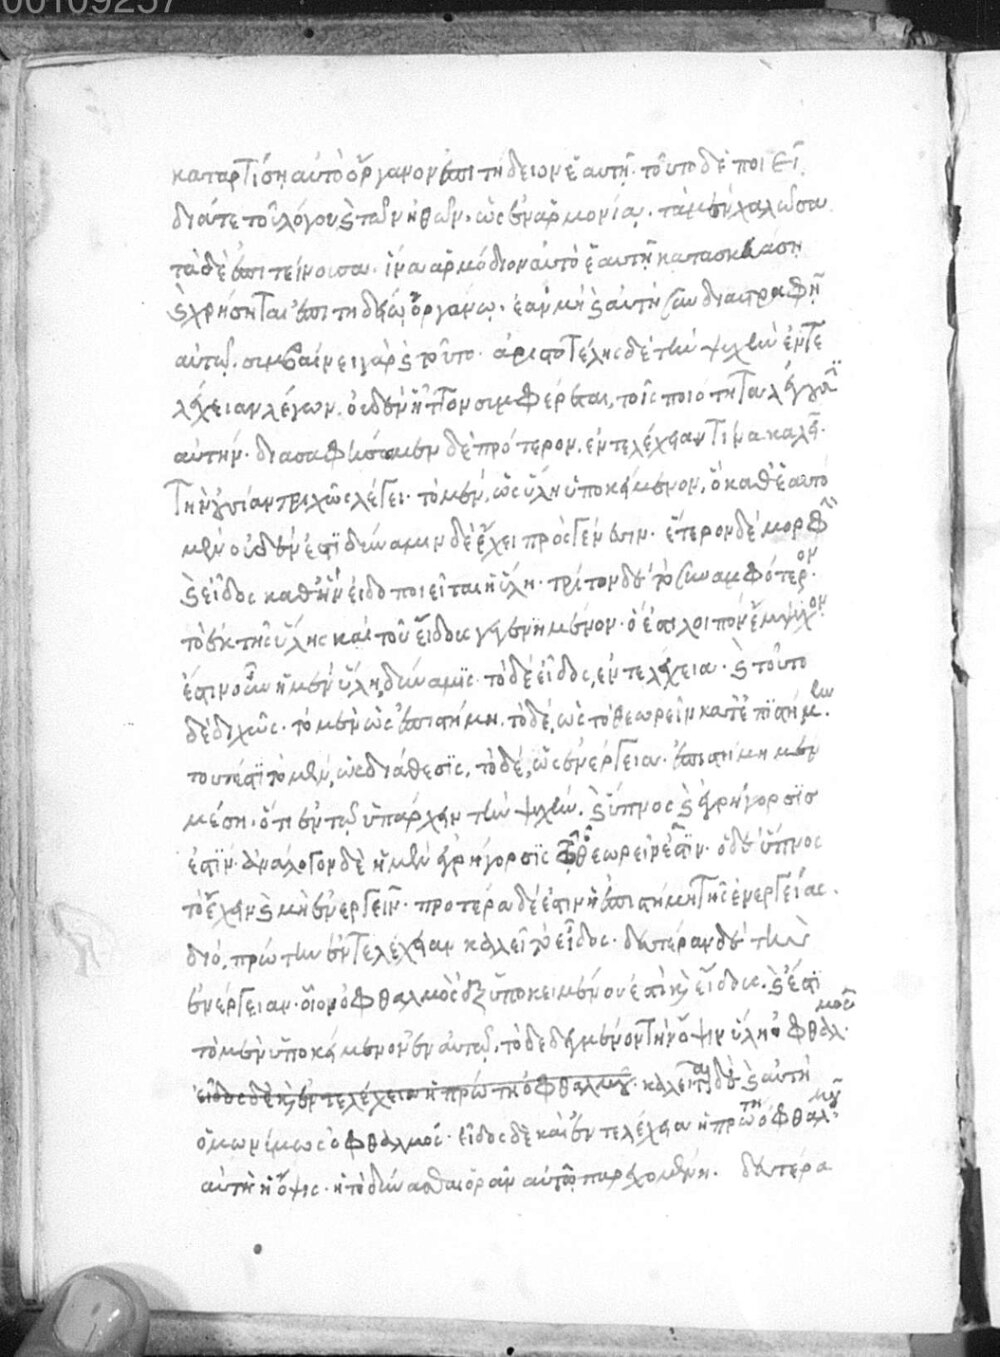 00109257
καταρτίση αὐτὸ ὄργανον ἐπιτήδειον ἑαυτῇ. τοῦτο δὲ ποιεῖ,
διά τε τοῦ λόγου καὶ τῶν ἠθῶν, ὡς ἐν ἁρμονίᾳ. τὰ μὲν χαλῶσα
τὰ δὲ ἐπιτείνουσα. ἵνα ἁρμόδιον αὐτὸ ἑαυτῇ κατασκευάση
καὶ χρήσηται ἐπιτηδείῳ ὀργάνῳ. ἐὰν μὴ καὶ αὐτὴ συνδιαστραφῇ
αὐτῷ. συμβαίνει γὰρ καὶ τοῦτο. ἀριστοτέλης δὲ τὴν ψυχὴν ἐντε
λέχειαν λέγων. οὐδὲν ἧττον συμφέρεται, τοῖς ποιότητα λέγουσι
αὐτήν. διασαφήσωμεν δὲ πρότερον, ἐντελέχειαν τίνα καλεῖ.
τὴν οὐσίαν τριχῶς λέγει. τὸ μὲν, ὡς ὕλη ὑποκείμενον, ὃ καθ' ἑαυτὸ
μὲν οὐδέν ἐστι δύναμιν δὲ ἔχει πρὸς γένεσιν. ἕτερον δὲ μορφὴ
καὶ εἶδος καθ' ἣν εἰδοποιεῖται ἡ ὕλη. τρίτον δὲ τὸ συναμφότερον.
τὸ ἐκ τῆς ὕλης καὶ τοῦ εἴδους γεγενημένον. ὅ ἐστι λοιπὸν ἔμψυχον.
ἔστιν οὖν ἡ μὲν ὕλη, δύναμις. τὸ δὲ εἶδος, ἐντελέχεια. καὶ τοῦτο
δὲ διχῶς. τὸ μὲν ὡς ἐπιστήμη. τὸ δέ, ὡς τὸ θεωρεῖν κατ' ἐπιστήμην.
τουτέστι τὸ μὲν, ὡς διάθεσις, τὸ δὲ, ὡς ἐνέργεια. ἐπιστήμη μὲν
μέση. ὅτι ἐν τῷ ὑπάρχειν τὴν ψυχήν. καὶ ὕπνος καὶ ἐγρήγορσις
ἐστίν. ἀνάλογον δὲ ἡ μὲν ἐγρήγορσις τῷ θεωρεῖν ἐστίν. ὁ δὲ ὕπνος
τὸ ἔχειν καὶ μὴ ἐνεργεῖν. προτέρα δέ ἐστιν ἡ ἐπιστήμη τῆς ἐνεργείας.
διό, πρώτην ἐντελέχειαν καλεῖ τὸ εἶδος. δευτέραν δὲ τὴν
ἐνέργειαν. οἷον ὁ ὀφθαλμὸς ἐξ ὑποκειμένου ἐστὶ καὶ εἴδους. καὶ ἔστι
τὸ μὲν ὑποκείμενον ἐν αὐτῷ, τὸ δεδεγμένον τὴν ὄψιν ὕλη ὀφθαλμοῦ.
εἶδος δὲ καὶ ἐντελέχεια ἡ πρώτη ὀφθαλμοῦ. καλεῖται δὲ καὶ αὐτὴ
ὁμωνύμως ὀφθαλμός. εἶδος δὲ καὶ ἐντελέχεια ἡ πρώτη ὀφθαλμοῦ
αὐτὴ ἡ ὄψις. ἡ τὸ δύνασθαι ὁρᾶν αὐτῷ παρεχομένη. δευτέρα